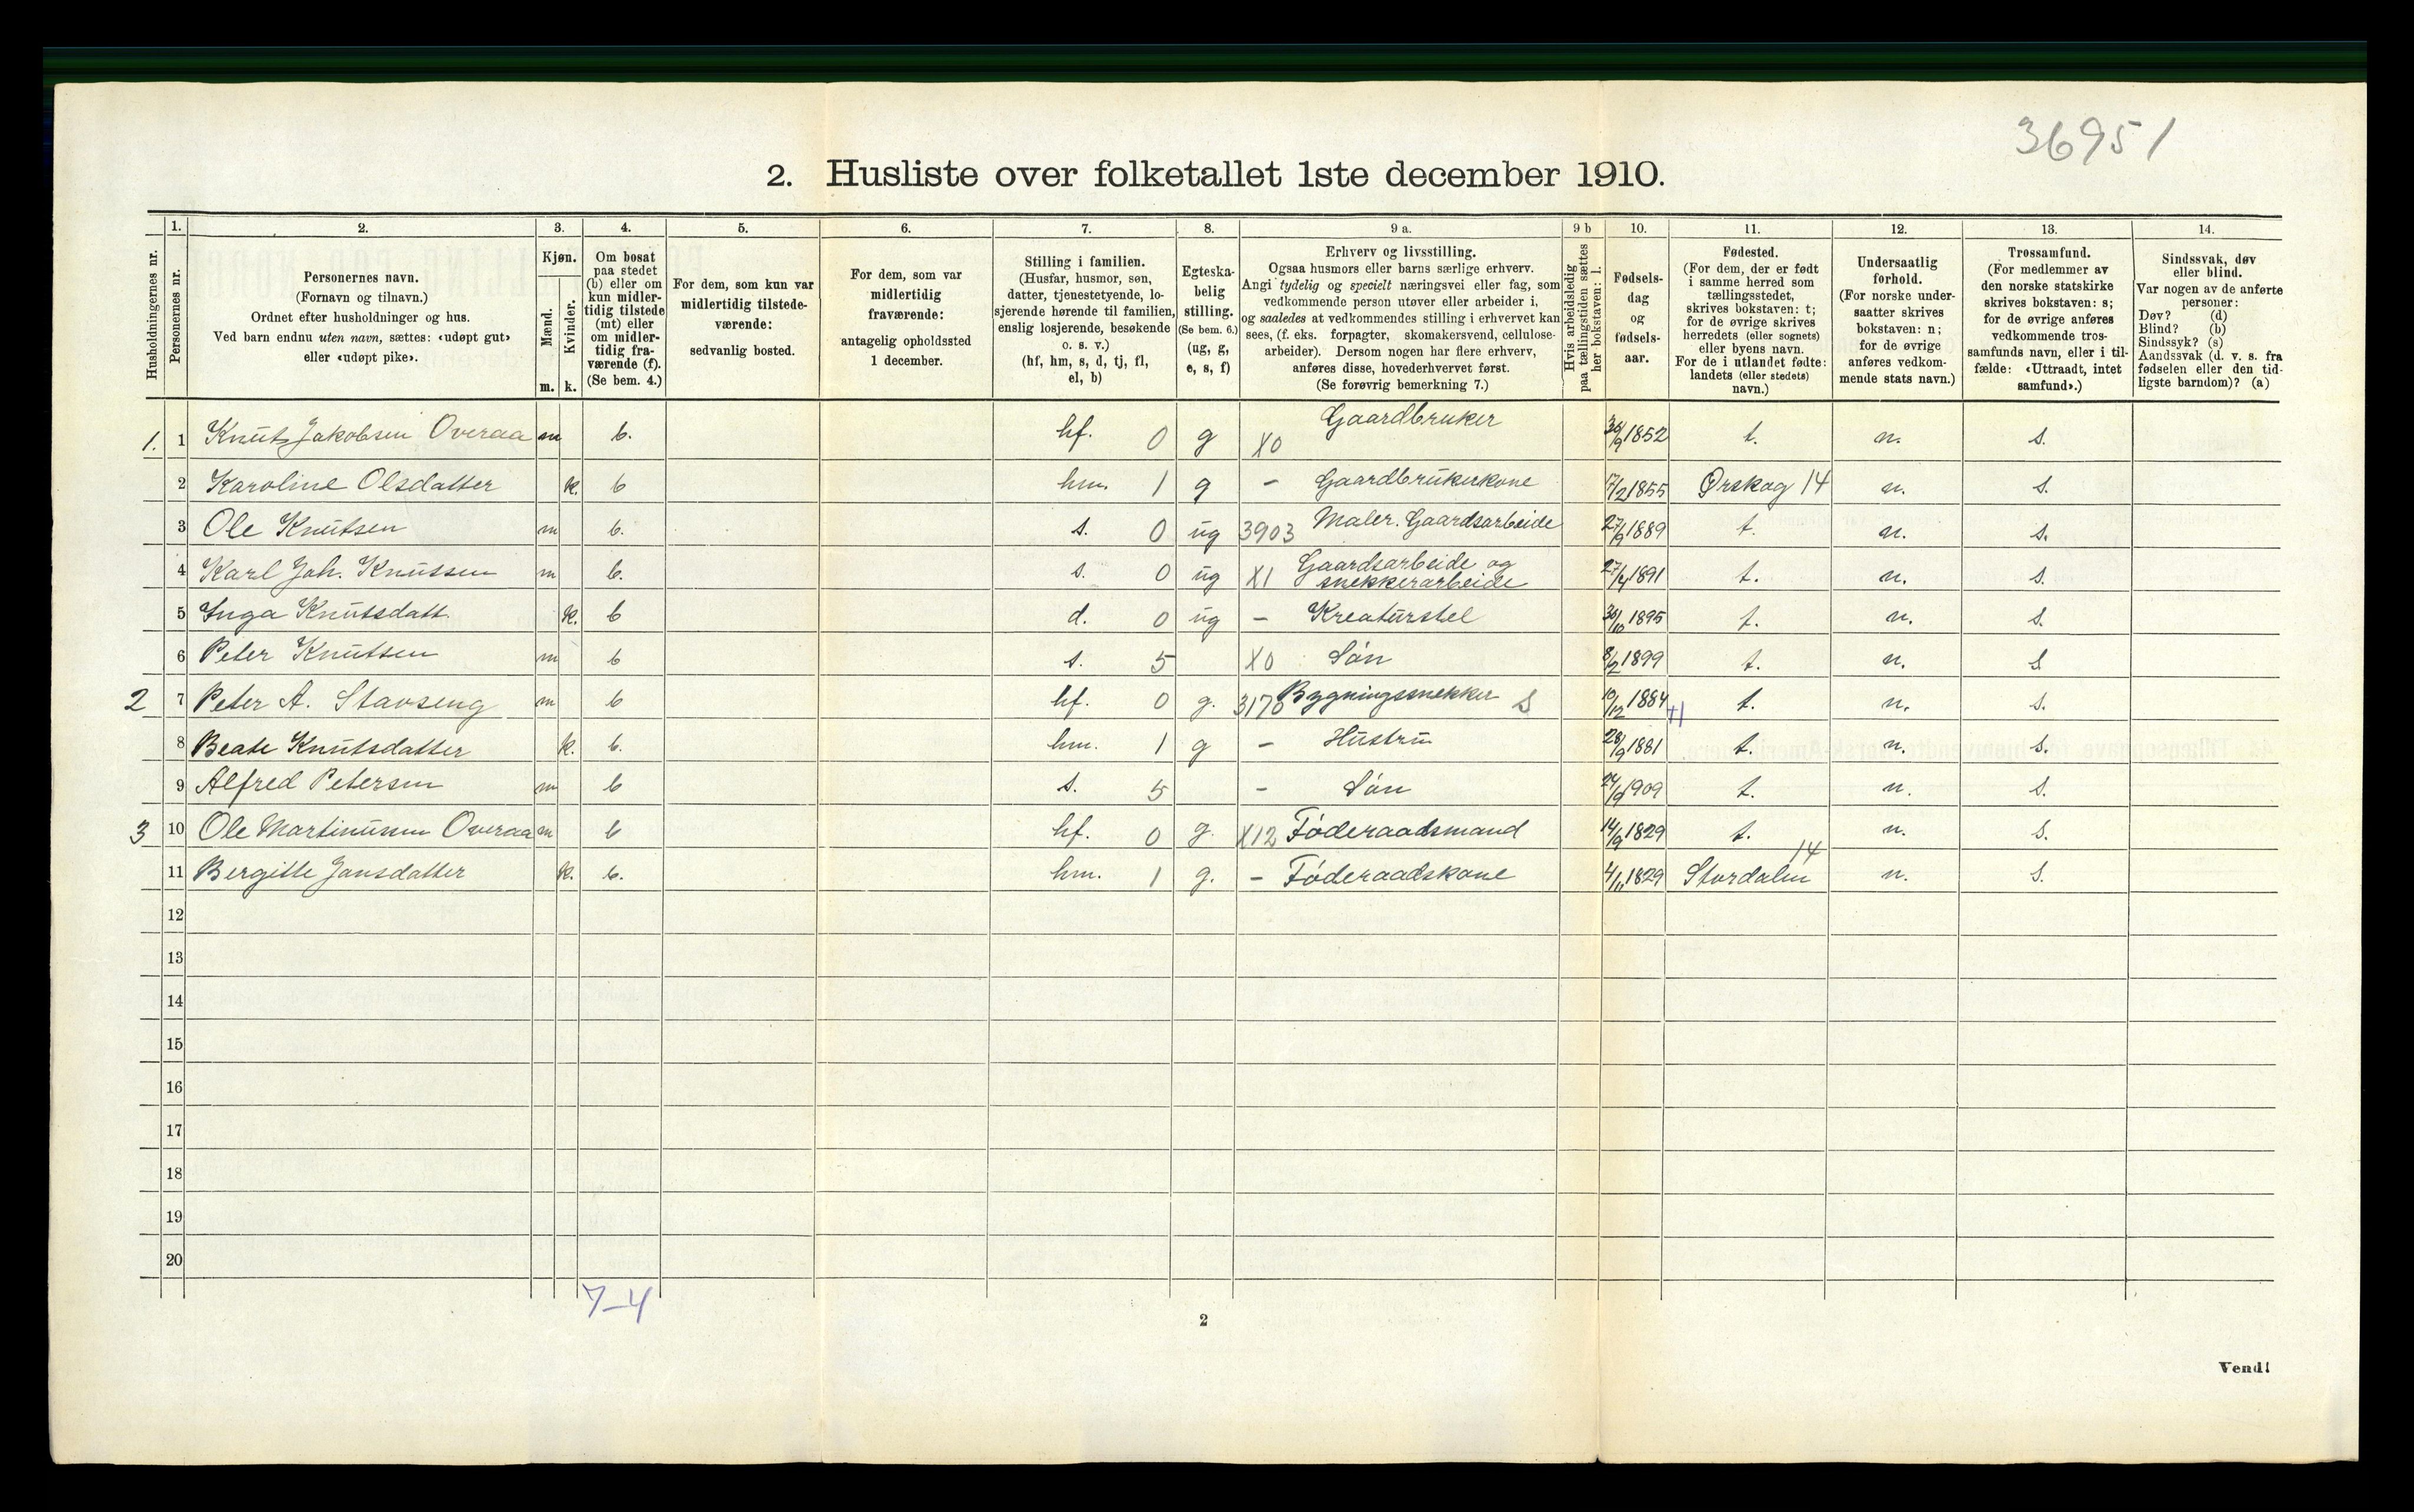 36951
2. Husliste over folketallet 1ste december 1910.
Husholdningernes nr.
1.
Personernes nr.
2.
Personernes navn.
(Fornavn og tilnavn.)
Ordnet efter husholdninger og hus.
Ved barn endnu uten navn, sættes: «udøpt gut»
eller «udøpt pike».
3.
Kjøn.
Mænd.
Kvinder.
m. k.
4.
Om bosat
paa stedet
(b) eller om
kun midler-
tidig tilstede
(mt) eller
om midler-
tidig fra-
værende (f).
(Se bem. 4.)
5.
For dem, som kun var
midlertidig tilstede-
værende:
sedvanlig bosted.
6.
For dem, som var
midlertidig
fraværende:
antagelig opholdssted
1 december.
7.
Stilling i familien.
(Husfar, husmor, søn,
datter, tjenestetyende, lo-
sjerende hørende til familien,
enslig losjerende, besøkende
o. s. v.)
(hf, hm, s, d, tj, fl,
el, b)
8.
Egteska-
belig
stilling.
(Se bem. 6.)
(ug, g,
e, s, f)
9 a.
Erhverv og livsstilling.
Ogsaa husmors eller barns særlige erhverv.
Angi tydelig og specielt næringsvei eller fag, som
vedkommende person utøver eller arbeider i,
og saaledes at vedkommendes stilling i erhvervet kan
sees, (f. eks. forpagter, skomakersvend, cellulose-
arbeider). Dersom nogen har flere erhverv,
anføres disse, hovederhvervet først.
(Se forøvrig bemerkning 7.)
9 b
Hvis arbeidsledig
paa tællingstiden sættes
her bokstaven: l.
10.
Fødsels-
dag
og
fødsels-
aar.
11.
Fødested.
(For dem, der er født
i samme herred som
tællingsstedet,
skrives bokstaven: t;
for de øvrige skrives
herredets (eller sognets)
eller byens navn.
For de i utlandet fødte:
landets (eller stedets)
navn.)
12.
Undersaatlig
forhold.
(For norske under-
saatter skrives
bokstaven: n;
for de øvrige
anføres vedkom-
mende stats navn.)
13.
Trossamfund.
(For medlemmer av
den norske statskirke
skrives bokstaven: s;
for de øvrige anføres
vedkommende tros-
samfunds navn, eller i til-
fælde: «Uttraadt, intet
samfund».)
14.
Sindssvak, døv
eller blind.
Var nogen av de anførte
personer:
Døv? (d)
Blind? (b)
Sindssyk? (s)
Aandssvak (d. v. s. fra
fødselen eller den tid-
ligste barndom)? (a)
1. 1 Knut Jakobsen Overaa m b. hf. 0 g X0 Gaardbruker 30/9 1852 t. n. s.
2 Karoline Olsdatter k. b hm. 1 g - Gaardbrukerkone 17/2 1855 Ørskog 14 n. s.
3 Ole Knutsen m b. s. 0 ug 3903 Maler. Gaardsarbeide 27/9 1889 t. n. s.
4 Karl Joh. Knutsen m b. s. 0 ug X1 Gaardsarbeide og
snekkerarbeide 27/4 1891 t. n. s.
5 Inga Knutsdatt. k. b d. 0 ug - Kreaturstel 30/10 1895 t. n. s.
6 Peter Knutsen m b s. 5 X0 Søn 8/2 1899 t. n. s
2 7 Peter A. Stavseng m b hf. 0 g. 3178 Bygningssnekker S 10/12 1884 t. n. s.
8 Beate Knutsdatter k. b. hm. 1 g - Hustru 28/9 1881 t. n. s.
9 Alfred Petersen m b s. 5 - Søn 1909 t. n. s.
3 10 Ole Martinusen Overaa m b hf. 0 g. X12 Føderaadsmand 14/9 1829 t. n. s.
11 Bergitte Jansdatter k. b. hm. 1 g. - Føderaadskone 4/11 1829 Stordalen 14 n. s.
12
13
14
15
16
17
18
19
20
7-4
2
Vend!